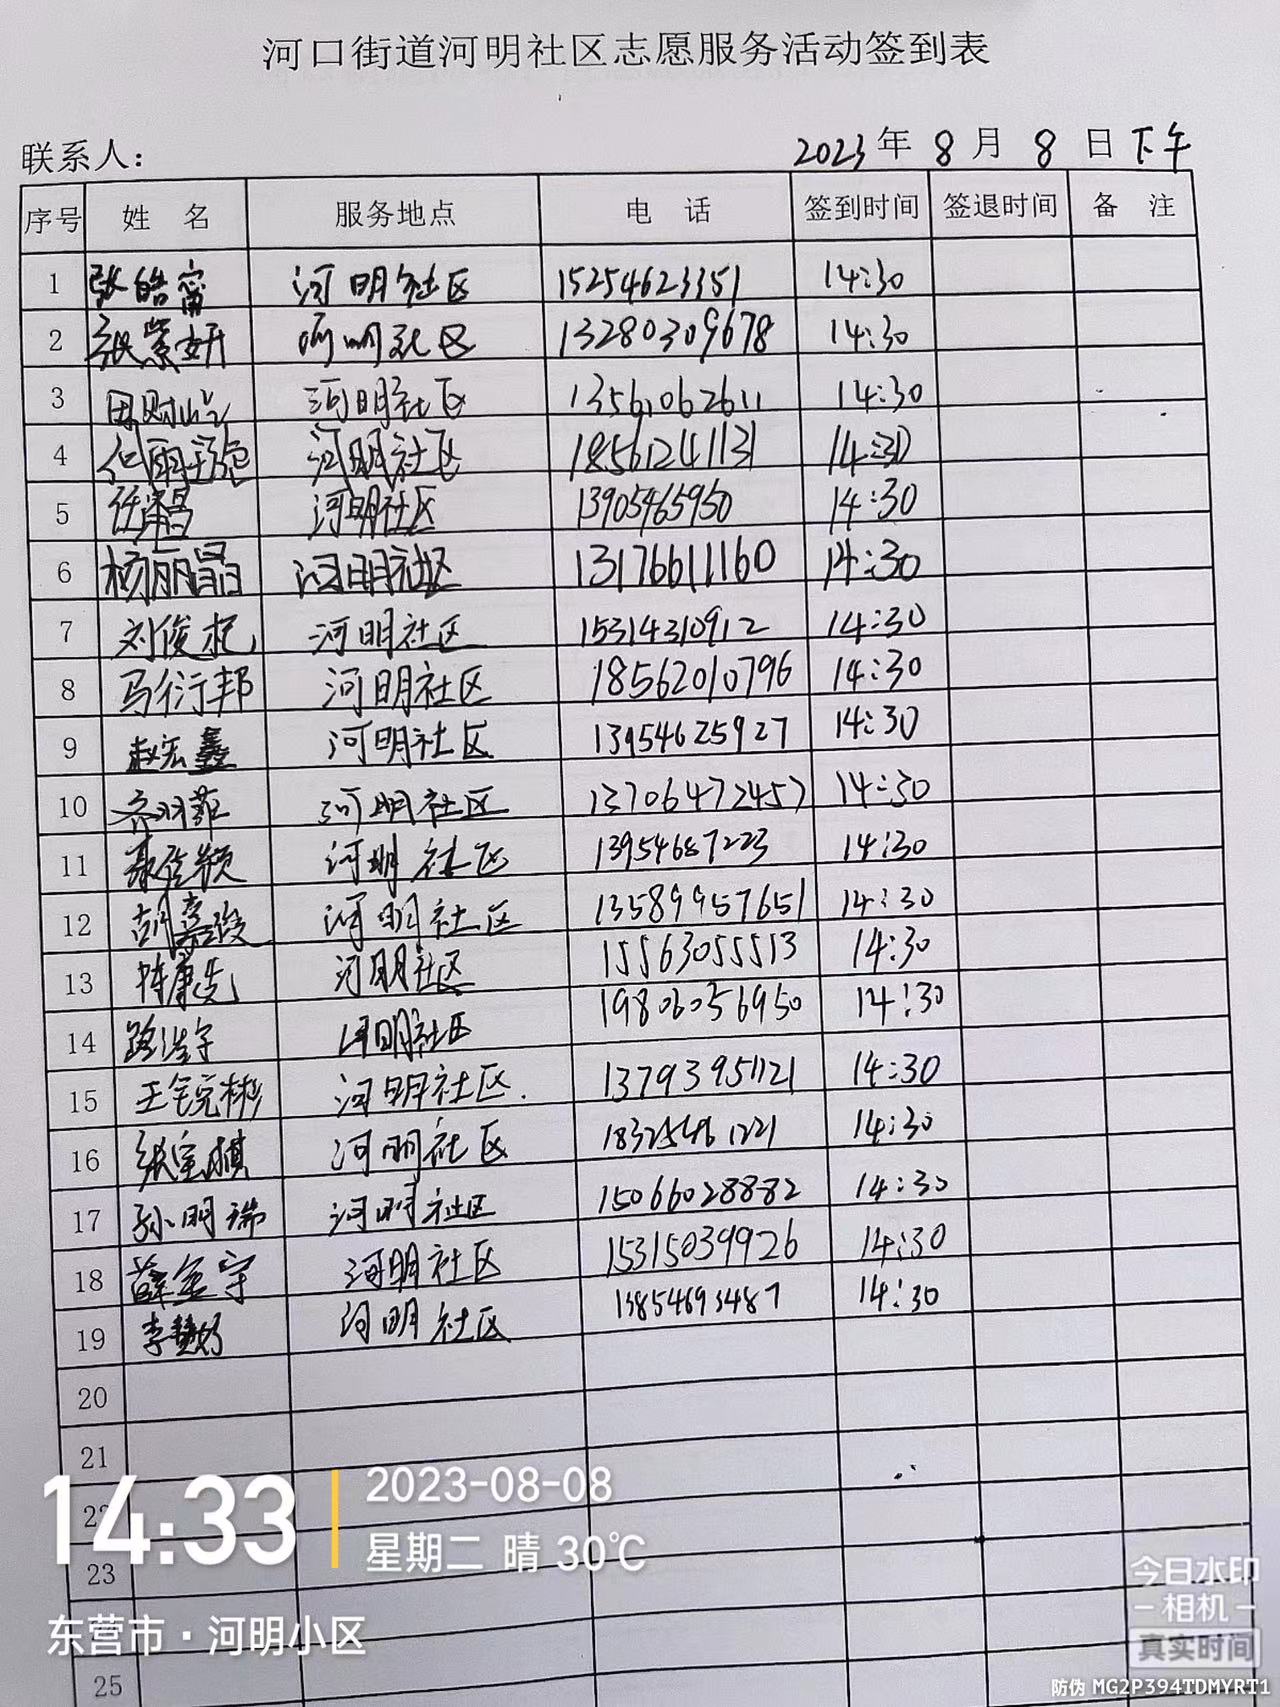 河口街道河明社区志愿服务活动签到表
联系人: 2023年8月8日下午
序号 姓名 服务地点 电话 签到时间 签退时间 备注
1 张皓甯 河明社区 15254623351 14:30
2 张紫妍 河明社区 13280309678 14:30
3 河明社区 13561062611 14:30
4 河明社区 18561241131 14:30
5 河明社区 13905465950 14:30
6 杨丽晶 河明社区 13176611160 14:30
7 刘俊杞 河明社区 15314310912 14:30
8 马衍邦 河明社区 18562010796 14:30
9 赵宏鑫 河明社区 13954625927 14:30
10 齐羽菲 河明社区 13706472457 14:30
11 河明社区 13954687223 14:30
12 胡嘉骏 河明社区 13589957651 14:30
13 河明社区 15563055513 14:30
14 路浩宇 河明社区 19806056950 14:30
15 王毓彬 河明社区 13793951121 14:30
16 张宝祺 河明社区 18325461221 14:30
17 孙明瑞 河明社区 15066028882 14:30
18 薛金宇 河明社区 15315039926 14:30
19 李慧妤 河明社区 13854693487 14:30
20
21
22
23
25
14:33
2023-08-08
星期二 晴 30℃
东营市·河明小区
今日水印
-相机-
真实时间
防伪 MG2P394TDMYRT1